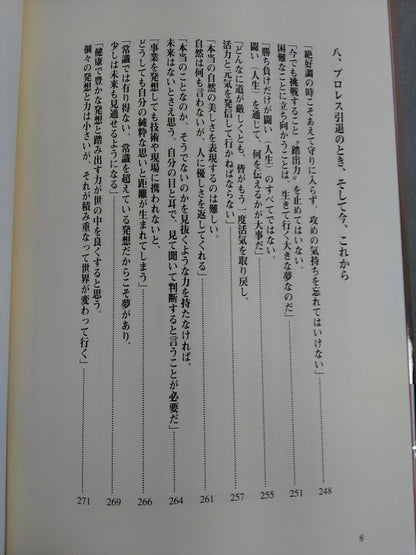 八、プロレス引退のとき、そして今、これから
「絶好調の時こそあえて守りに入らず、攻めの気持ちを忘れてはいけない」 248
「今でも挑戦すること〝踏出力〟を止めてはいない。
困難なことに立ち向かうことは、生きて行く大きな夢なのだ」 251
「勝ち負けだけが闘い（人生）のすべてではない。
闘い（人生）を通して、何を伝えるかが大事だ」 255
「どんなに道が厳しくとも、皆がもう一度活気を取り戻し、
活力と元気を発信して行かねばならない」 257
「本当の自然の美しさを表現するのは難しい。
自然は何も言わないが、人に優しさを返してくれる」 261
「本当のことなのか、そうでないのかを見抜くような力を持たなければ、
未来はないとさえ思う。自分の目と耳で、見て聞いて判断すると言うことが必要だ」 264
「事業を発想しても技術や現場に携われないと、
どうしても自分の純粋な思いと距離が生まれてしまう」 266
「常識では有り得ない、常識を超えている発想だからこそ夢があり、
少しは未来も見通せるようになる」 269
「健康で豊かな発想と踏み出す力が世の中を良くすると思う。
個々の発想と力は小さいが、それが積み重なって世界が変わって行く」 271
8